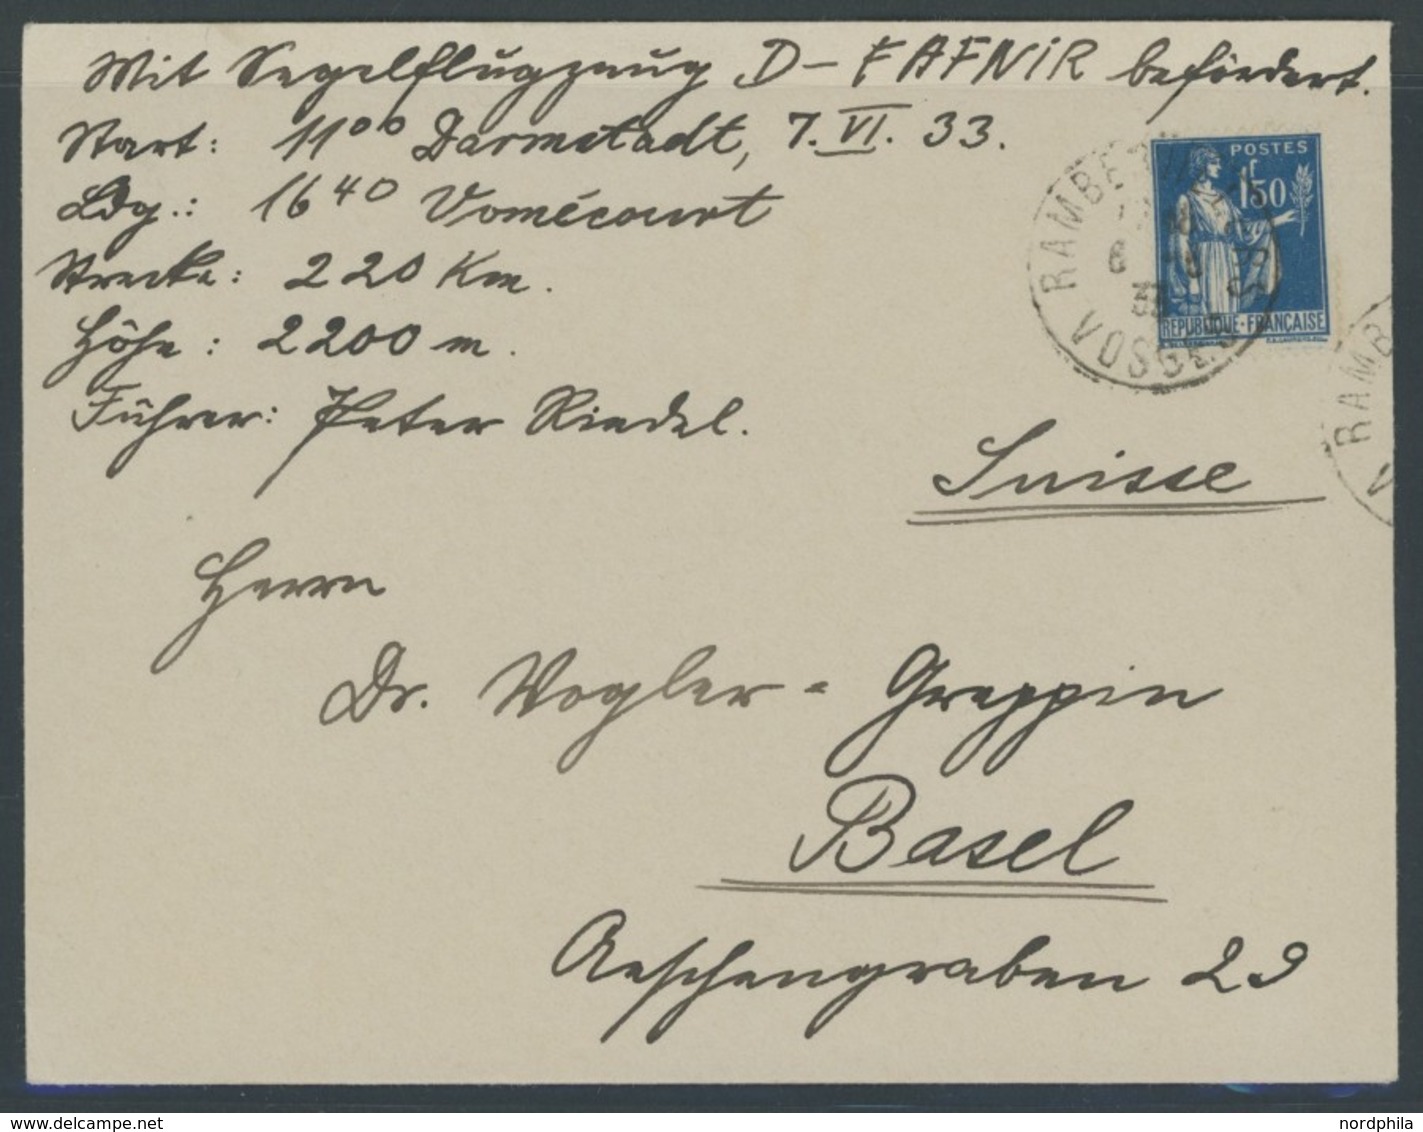 Mit Segelflugzeug D-FAFNIR befördert.
Start: 11⁰⁰ Darmstadt, 7. VI. 33.
Ldg.: 16⁴⁰ Vomécourt
Strecke: 220 Km.
Höhe: 2200 m.
Führer: Peter Riedel.
POSTES
1f50
REPUBLIQUE-FRANÇAISE
VOSGES
RAMB
Suisse
Herrn
Dr. Vogler-Greppin
Basel
Aeschengraben 29
www.delcampe.net
nordphila